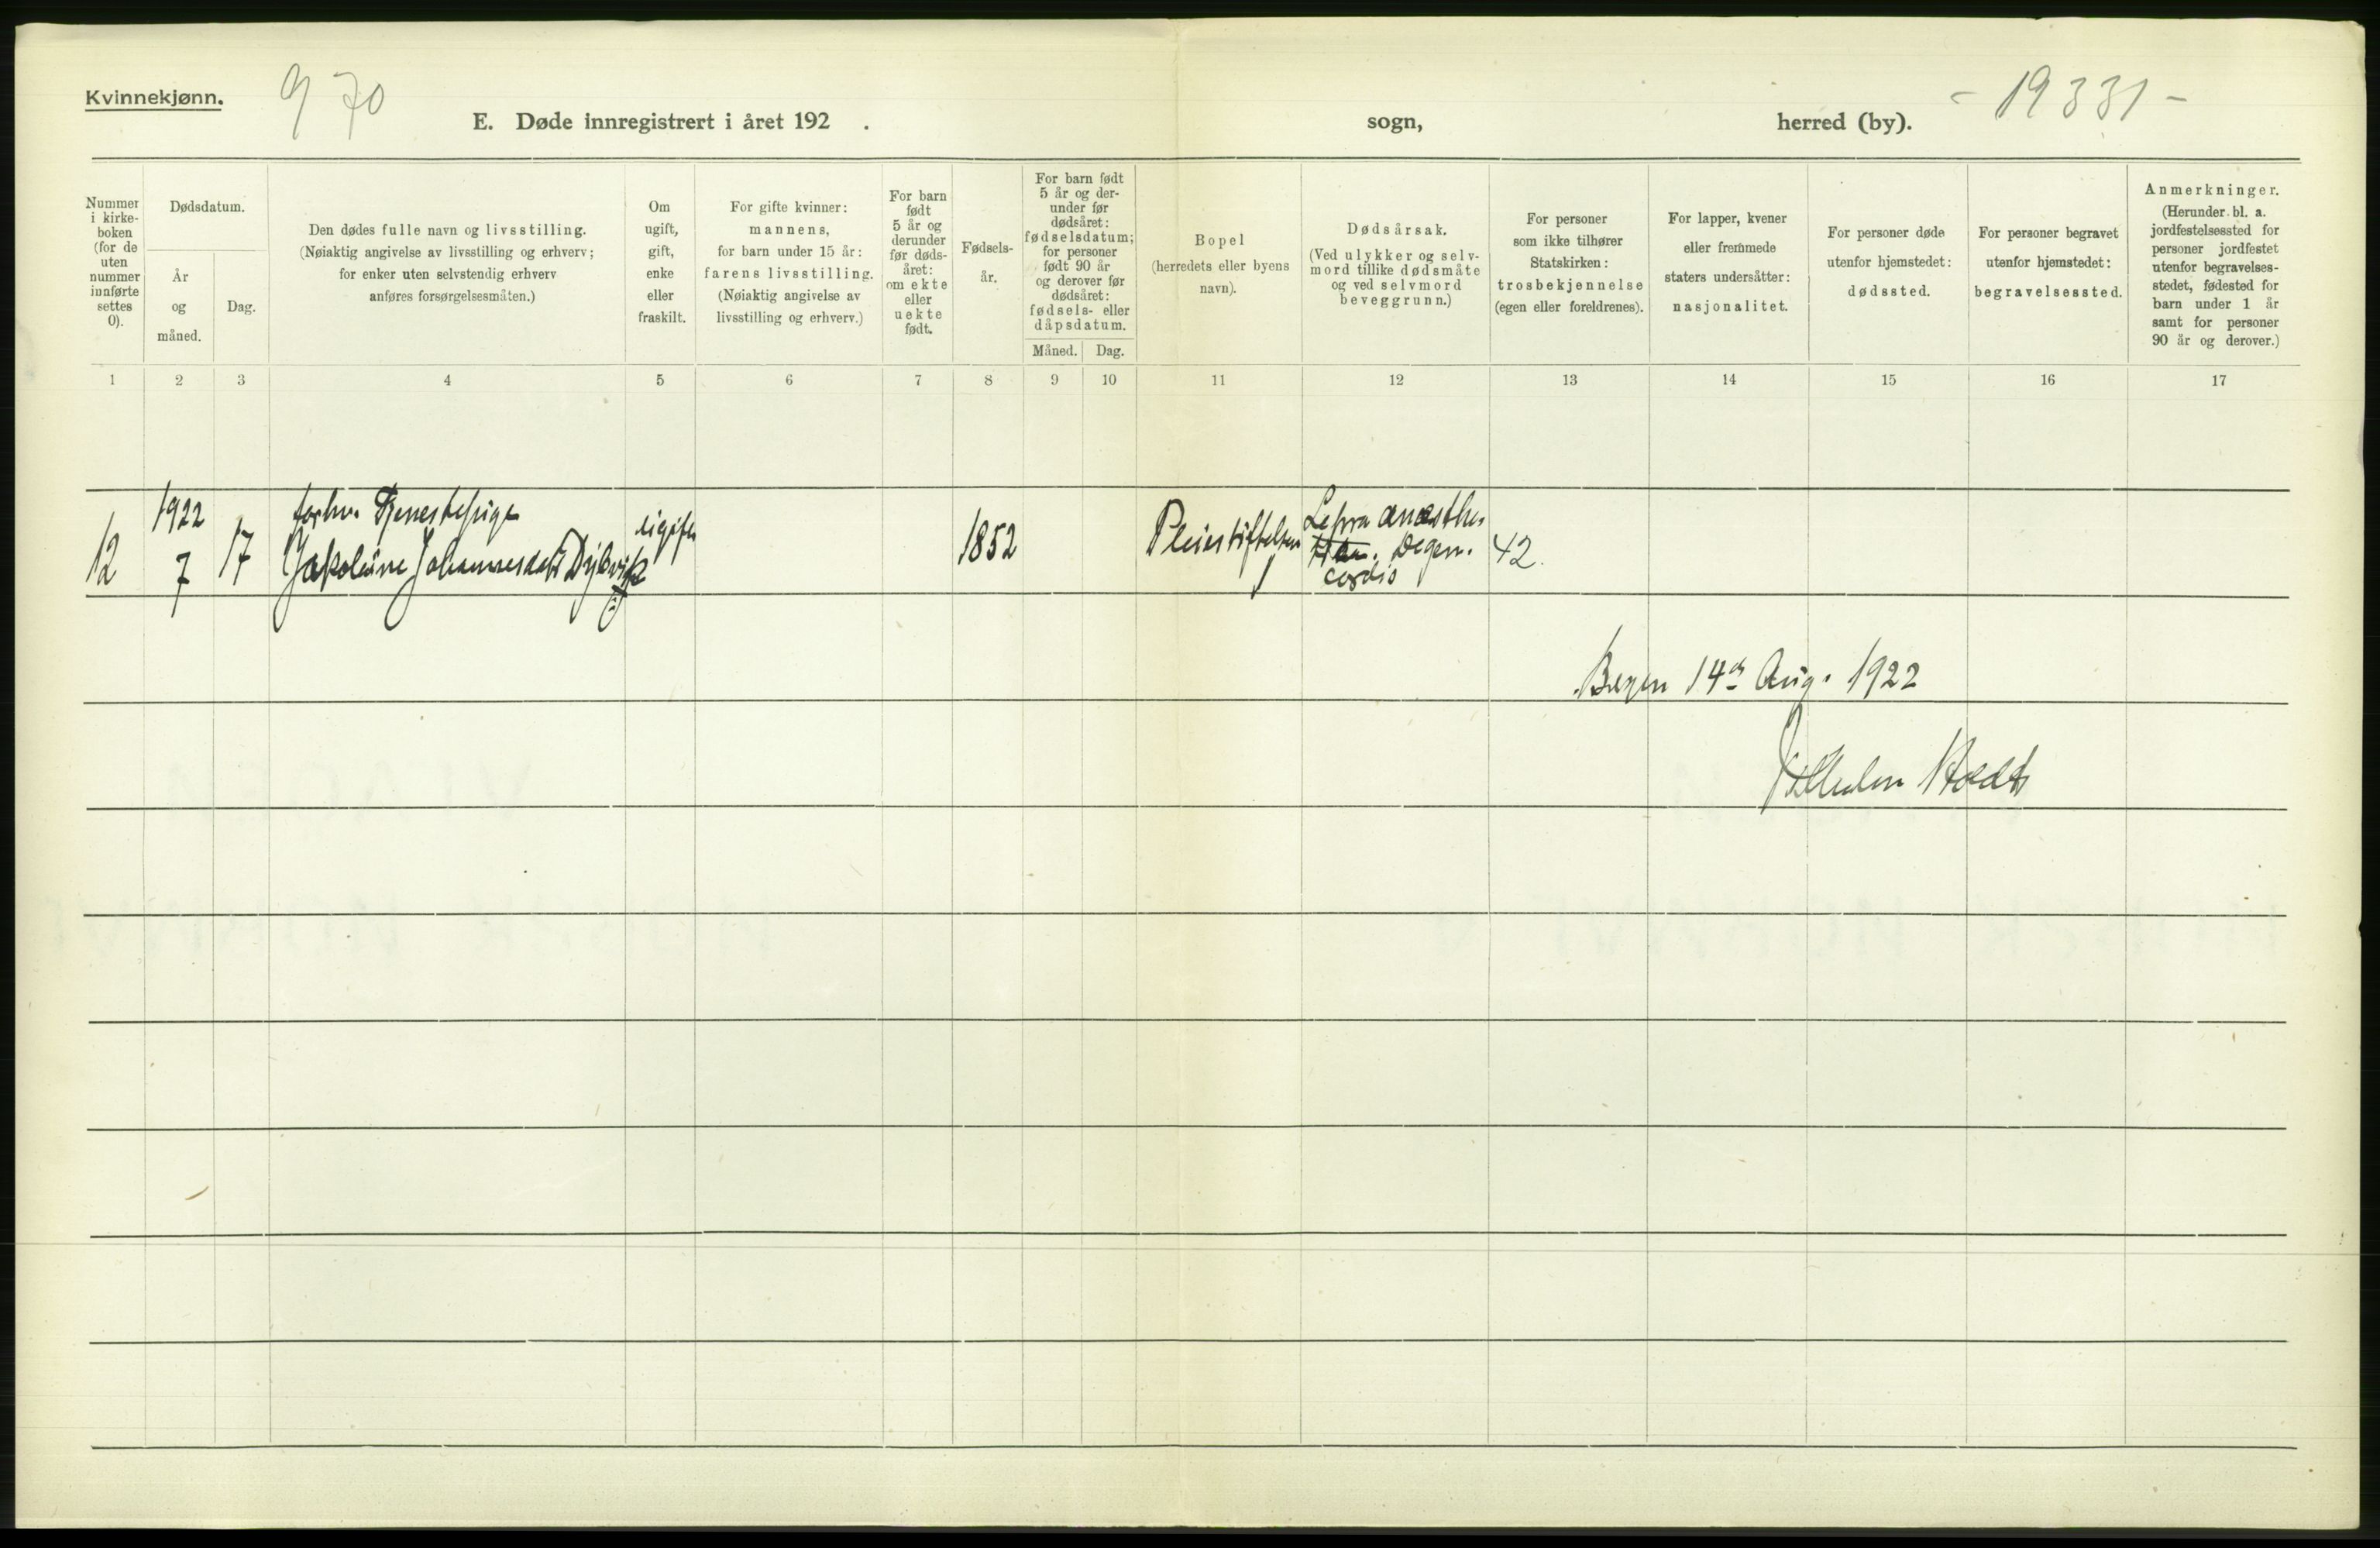 Kvinnekjønn.
970
E. Døde innregistrert i året 192 .
sogn,
herred (by).
- 19331 -
Nummer
i kirke-
boken
(for de
uten
nummer
innførte
settes
0).
Dødsdatum.
År
og
måned.
Dag.
Den dødes fulle navn og livsstilling.
(Nøiaktig angivelse av livsstilling og erhverv;
for enker uten selvstendig erhverv
anføres forsørgelsesmåten.)
Om
ugift,
gift,
enke
eller
fraskilt.
For gifte kvinner:
mannens,
for barn under 15 år:
farens livsstilling.
(Nøiaktig angivelse av
livsstilling og erhverv.)
For barn
født
5 år og
derunder
før døds-
året:
om ekte
eller
uekte
født.
Fødsels-
år.
For barn født
5 år og der-
under før
dødsåret:
fødselsdatum;
for personer
født 90 år
og derover før
dødsåret:
fødsels- eller
dåpsdatum.
Måned. Dag.
Bopel
(herredets eller byens
navn).
Dødsårsak.
(Ved ulykker og selv-
mord tillike dødsmåte
og ved selvmord
beveggrunn.)
For personer
som ikke tilhører
Statskirken:
trosbekjennelse
(egen eller foreldrenes).
For lapper, kvener
eller fremmede
staters undersåtter:
nasjonalitet.
For personer døde
utenfor hjemstedet:
dødssted.
For personer begravet
utenfor hjemstedet:
begravelsessted.
Anmerkninger.
(Herunder bl. a.
jordfestelsessted for
personer jordfestet
utenfor begravelses-
stedet, fødested for
barn under 1 år
samt for personer
90 år og derover.)
1 2 3 4 5 6 7 8 9 10 11 12 13 14 15 16 17
12
1922
7
17
forhv. Tjenestepige
Jakobine Johannesdatr Dybvik
ugift
1852
Pleiestiftelsen
Lepra anæsthe.
Degen.
cordis
42.
Bergen 14de Aug. 1922
Vilhelm Holdt